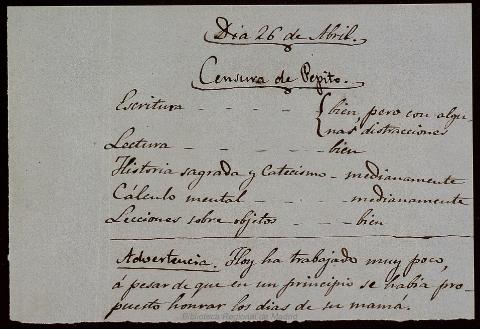 Dia 26 de Abril.
Censura de Pepito.
Escritura - - - - { bien, pero con algu-
nas distracciones
Lectura - - - - - bien
Historia sagrada y Catecismo - medianamente
Cálculo mental - - - - medianamente
Lecciones sobre objetos - - - bien
Advertencia. Hoy ha trabajado muy poco,
á pesar de que en un principio se habia pro-
puesto honrar los dias de su mamá.
Biblioteca Regional de Madrid